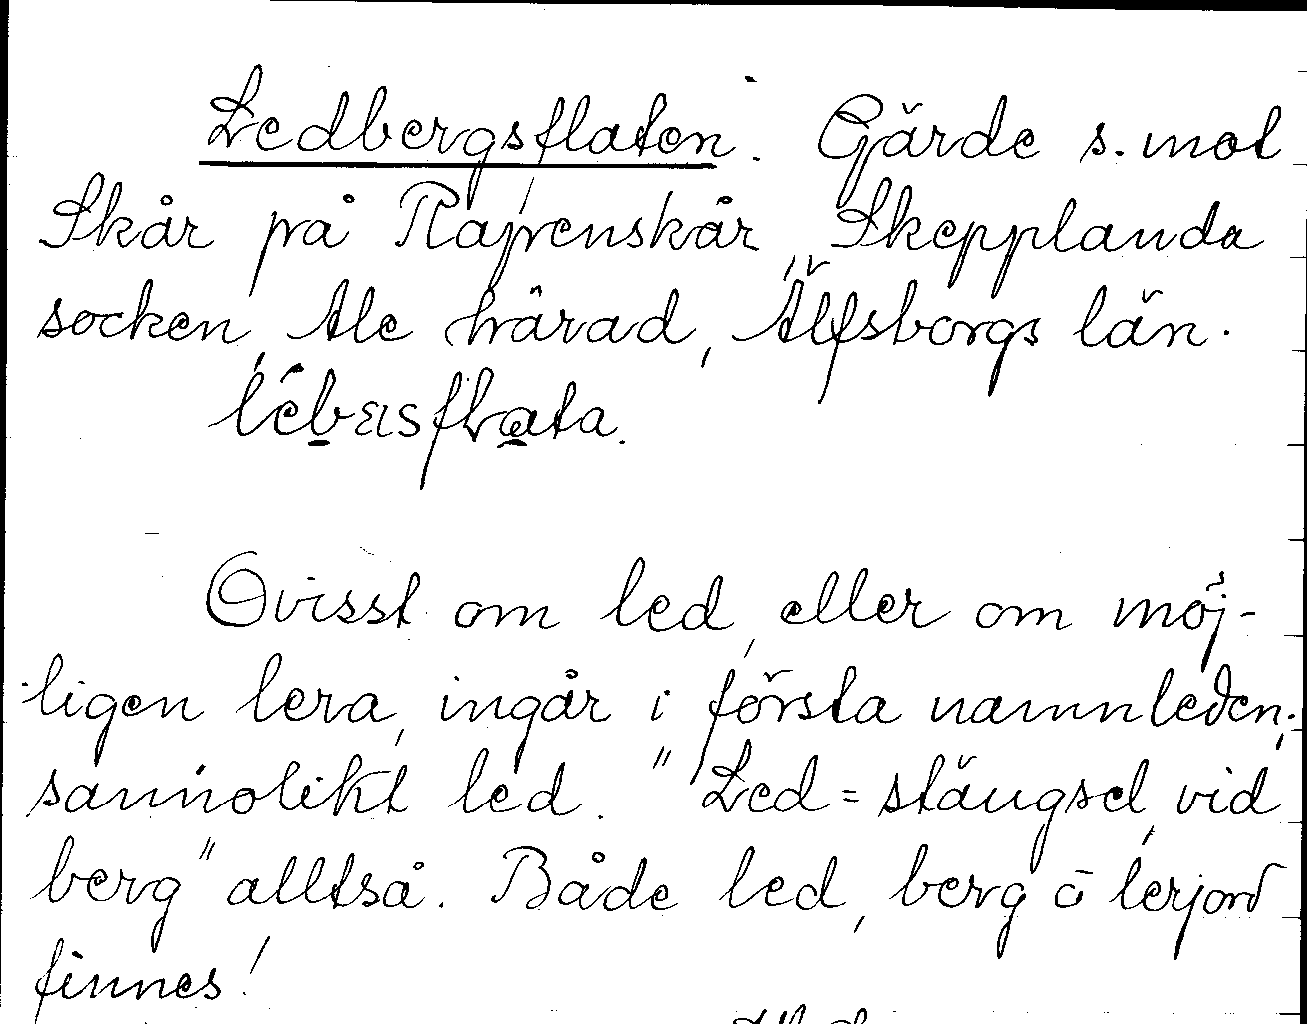 Ledbergsflaten. Gärde s. mot
Skår på Rapenskår, Skepplanda
socken, Ale härad, Älfsborgs län.
Ovisst om led, eller om möj-
ligen lera, ingår i första namnleden;
sannolikt led. "Led = stängsel, vid
berg" alltså. Både led, berg o lerjord
finnes!